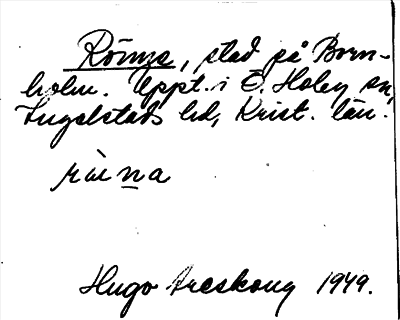 Rönne, stad på Born-
holm. Uppt. i Ö. Hoby sn,
Ingelstads hd, Krist. län.
ræna
Hugo Areskoug 1949.